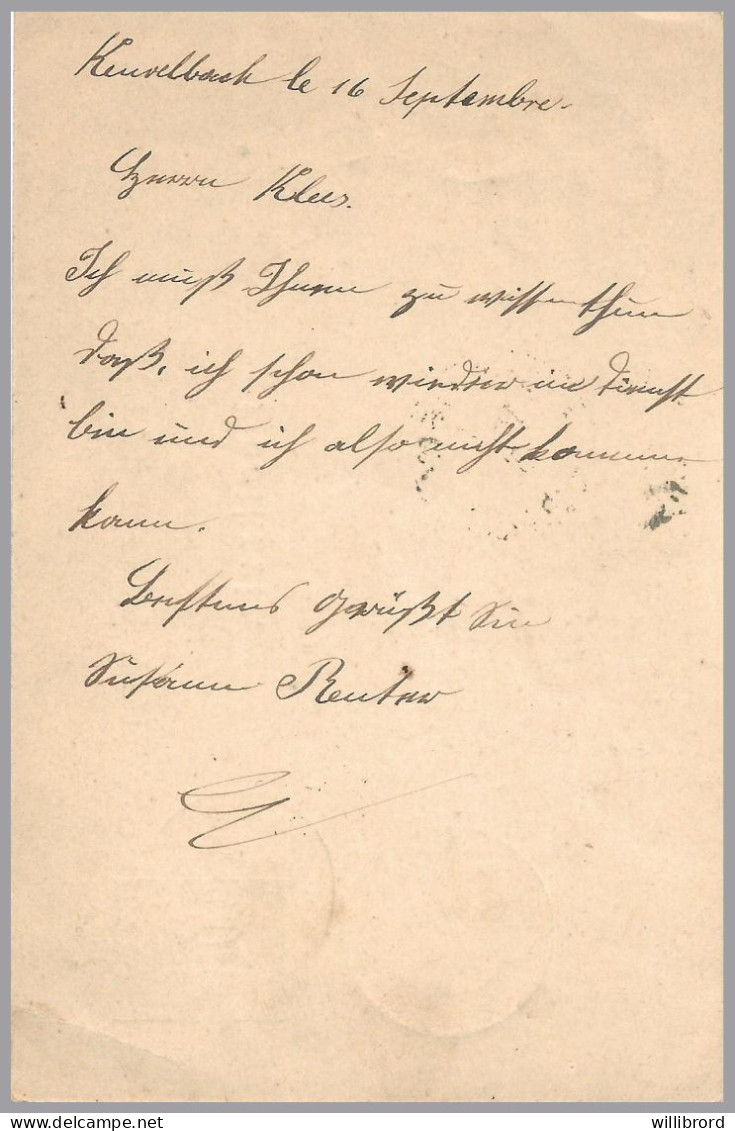 Keuvelbach le 16 Septembre.
Herrn Klees.
Ich muß Ihnen zu wissen thun
daß, ich schon wieder im dienst
bin und ich also nicht kommen
kann.
Bestens grüßt Sie
Susann Reuter
willibrord